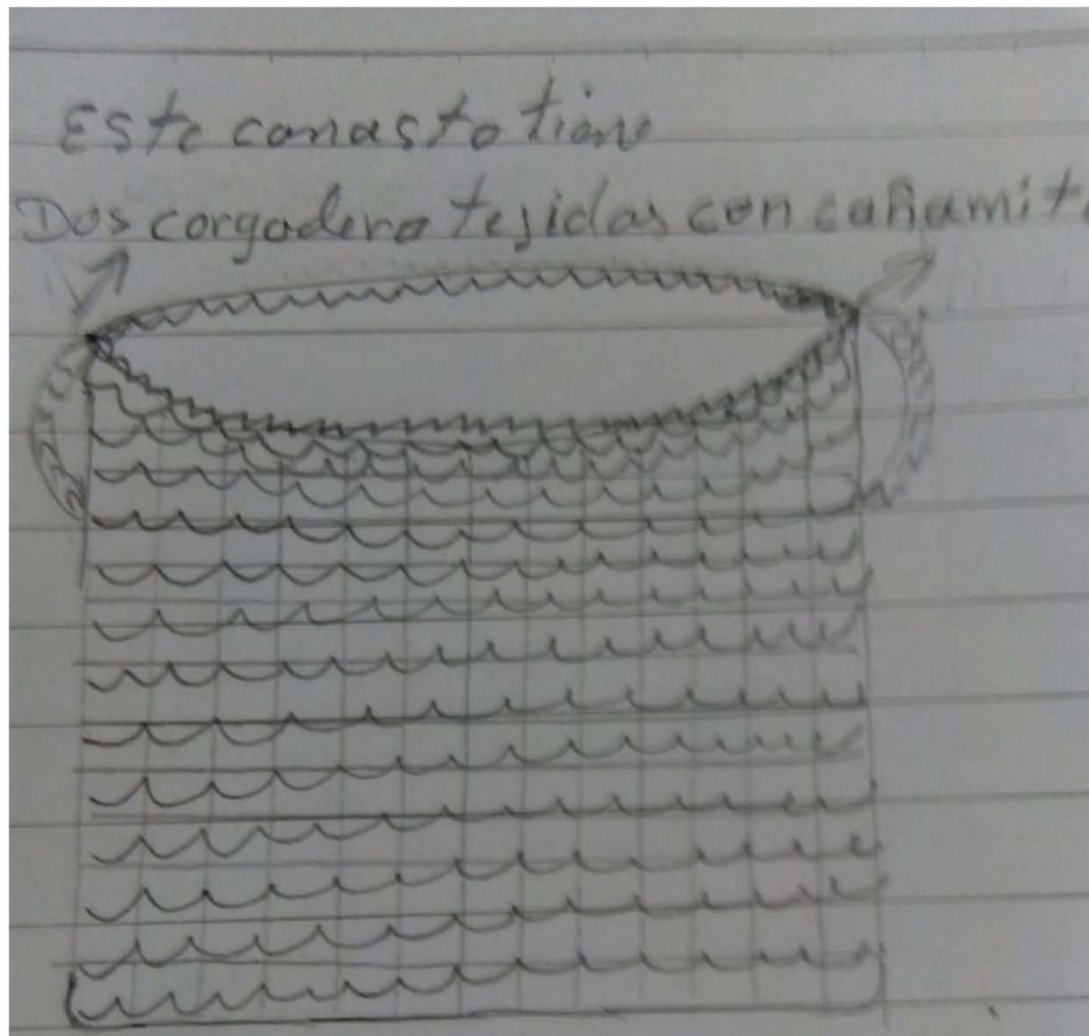 Este canasto tiene
Dos cargadera tejidas con cañamit